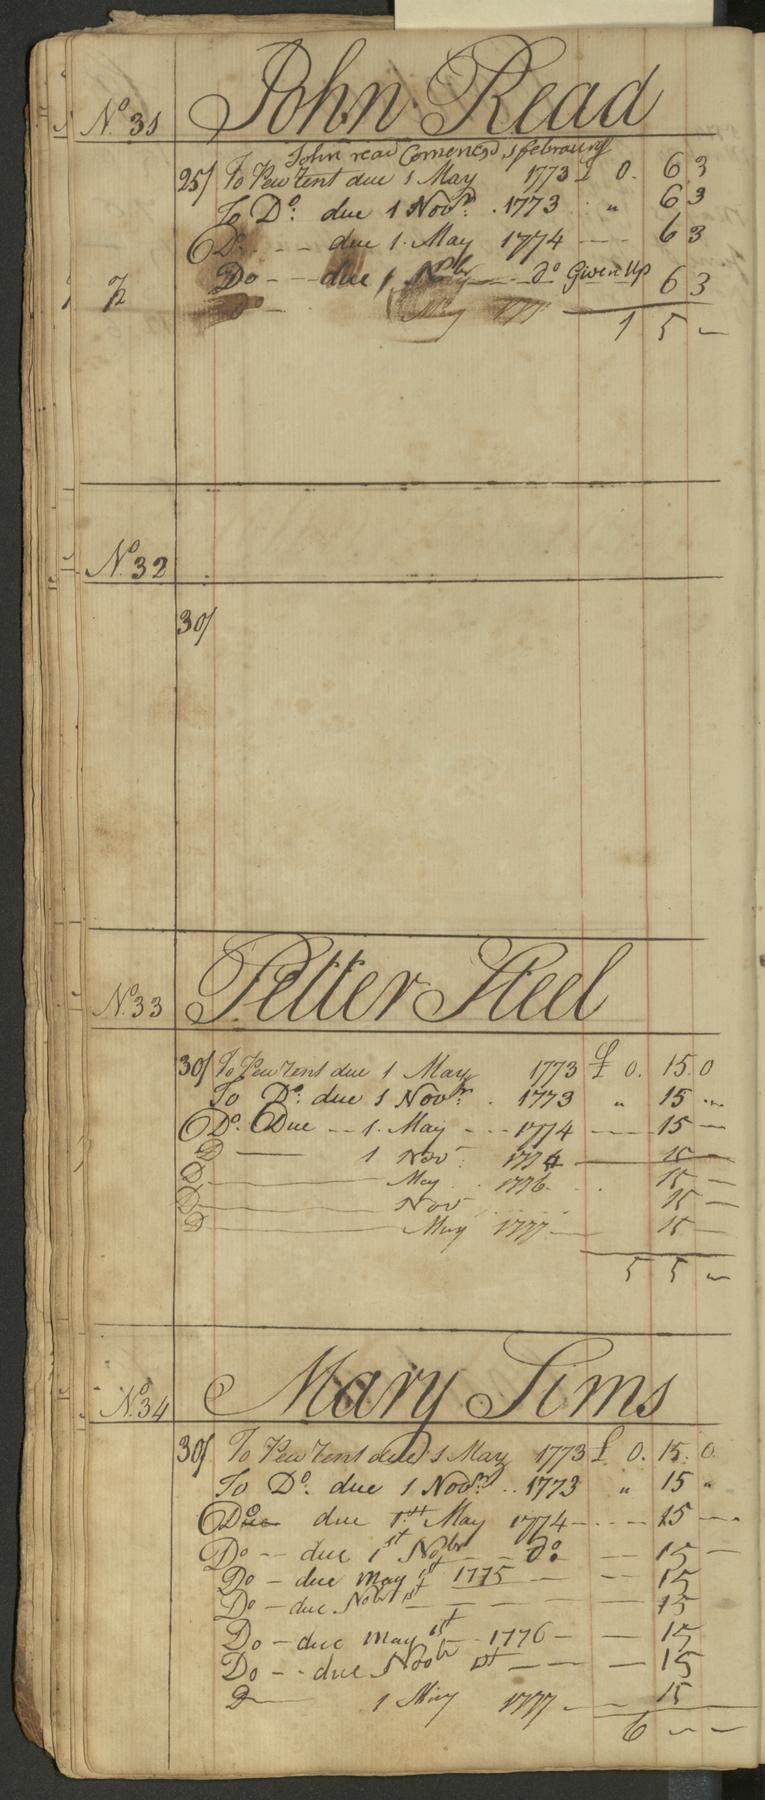 No. 31 John Read
John read Comencd 1 febraury
25/ To Pew Rent due 1 May 1773 £ 0. 6 3
To Do: due 1 Novr. 1773 " 6 3
Do. due 1. May 1774 6 3
Do due 1 Nobr do Given Up 6 3
May 177
1 5 —
No. 32
30/
No. 33 Petter Steel
30/ To Pew Rent due 1 May 1773 £ 0. 15. 0
To Do: due 1 Novr. 1773 " 15 "
Do. Due 1. May 1774 15 —
D 1 Nov 1774 15 —
D May 1776 15 —
D Nov 15 —
D May 1777 15 —
5 5 —
No. 34 Mary Sims
30/ To Pew Rent due 1 May 1773 £ 0. 15. 0
To Do. due 1 Novr. 1773 " 15 "
Do due 1st May 1774 15 —
Do due 1st Nobr do 15 —
Do due May 1st 1775 15
Do due Nobr 1st 15
Do due May 1st 1776 15
Do due Nobr 1st 15
D 1 May 1777 15
6 — —